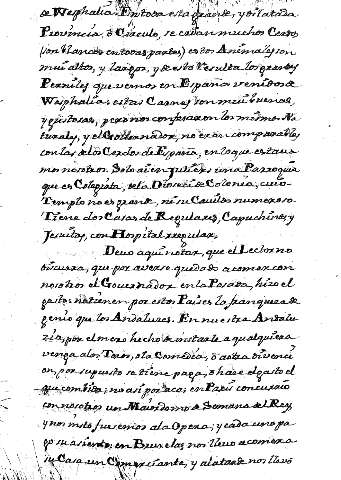 de Wesphalia. En toda esta grande, y dilatada
Provincia, ò Circulo, se crian muchos Cerdos
(son blancos en todas partes) estos Animales son
mui altos, y largos, y de esto resulta los grandes
Perniles que vemos en España venidos de
Wesphalia: estas Carnes son mui buenas,
y gustosas, pero nos confesaron los mismos Na-
turales, y el Governador, no eran comparables
con las de los Cerdos de España, en lo que estava-
mos nosotros. Solo ai en Juliers una Parroquia
que es Colegiata, de la Diocesi de Colonia, cuio
Templo no es grande, ni su Cavildo numeroso.
Tiene dos Casas de Regulares, Capuchinos y
Jesuitas, con Hospital regular.
Devo aqui notar, que el Lector no
discurra, que por averse quedado a comer con
nosotros el Governador en la Posada, hizo el
gasto: no tienen por estos Paises la franqueza de
genio que los Andaluces. En nuestra Andalu-
zia, por el mero hecho de instarle a qualquiera
venga a los Toros, ò la Comedia, ò a otra diverci-
on, por supuesto se tiene paga, ò hace el gasto el
que combida; no asi por acà; en Paris concurriò
con nosotros un Maiordomo de Semana del Rey,
y nos instò fuesemos a la Opera; y cada uno pa-
gò su asiento: en Bruxelas nos llevò a comer a
su Casa un Comerciante, y a la tarde nos llevò